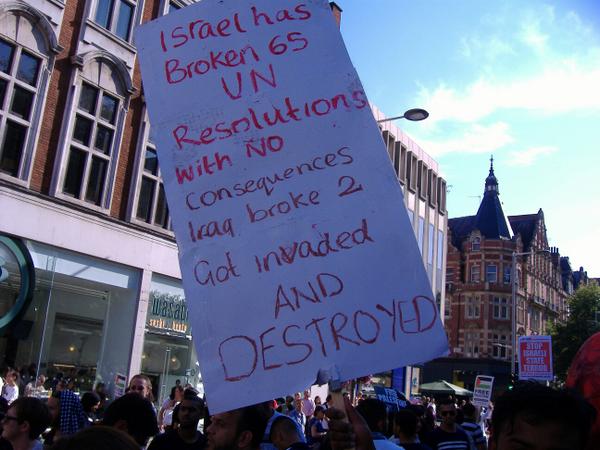 Israel has
Broken 65
UN
Resolutions
with NO
consequences
Iraq broke 2
Got invaded
AND
DESTROYED
wasabi
STOP
ISRAELI
STATE
TERROR